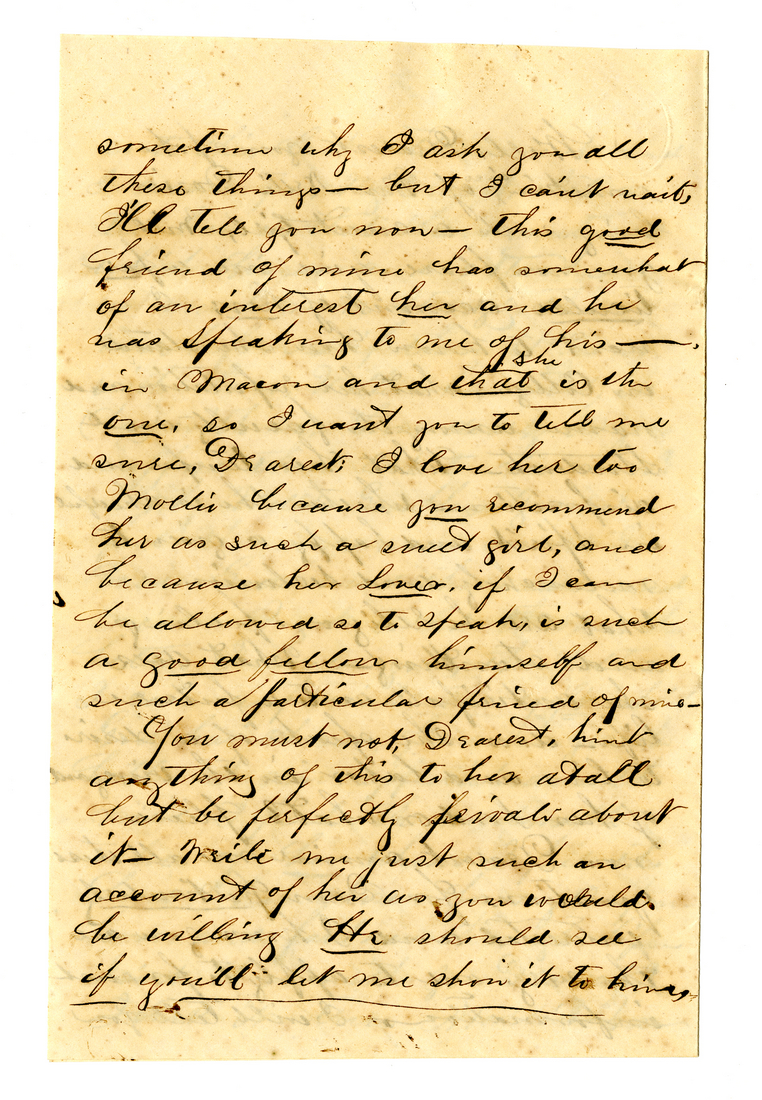 sometime why I ask you all
these things— but I can't wait,
I'll tell you now— this good
friend of mine has somewhat
of an interest her and he
was speaking to me of his —.
she
in Macon and that is the
one, so I want you to tell me
sure, Dearest; I love her too
Mollie because you recommend
her as such a sweet girl, and
because her Lover, if I can
be allowed so to speak, is such
a good fellow himself and
such a particular friend of mine—
You must not, Dearest, hint
anything of this to her atall
but be perfectly private about
it— Write me just such an
account of her as you would
be willing He should see
if you'll let me show it to him,